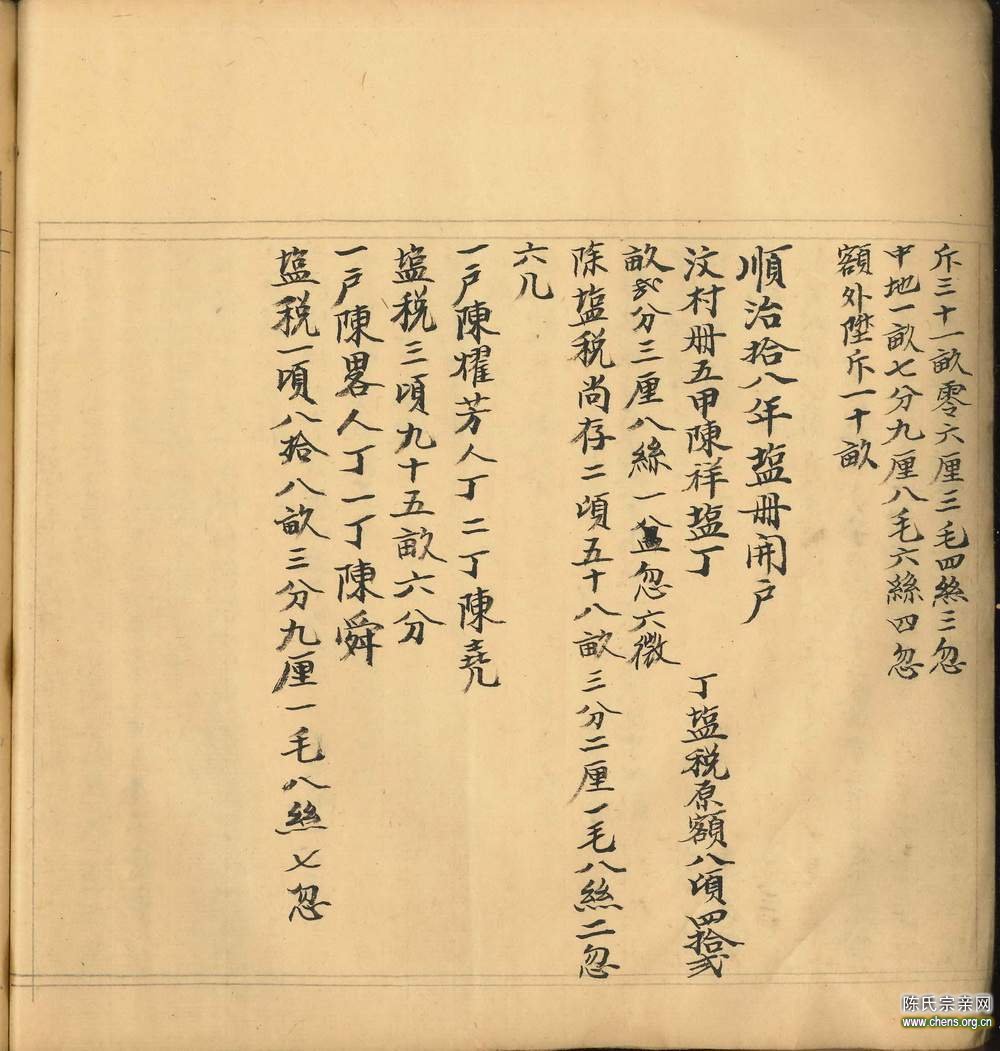 斥三十一畝零六厘三毛四絲三忽
中地一畝七分九厘八毛六絲四忽
額外陞斥一十畝
順治拾八年塩册開户
汶村册五甲陳祥塩丁　丁塩税原額八頃四拾弍
畝弍分三厘八絲一忽六微
除塩税尚存二頃五十八畝三分二厘一毛八絲二忽
六几
一户陳耀芳人丁二丁陳堯
塩税三頃九十五畝六分
一户陳畧人丁一丁陳舜
塩税一頃八拾八畝三分九厘一毛八絲七忽
陈氏宗亲网
www.chens.org.cn